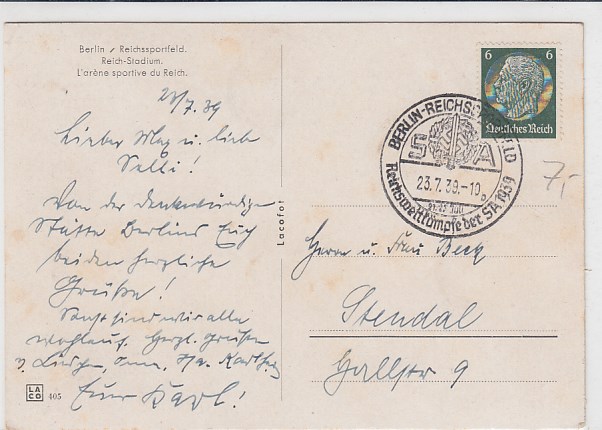 Berlin / Reichssportfeld.
Reich-Stadium.
L'arène sportive du Reich.
23/7.39
Lieber Max u. liebe
Selli!
Von der denkwürdigen
Stätte Berlins Euch
beiden herzliche
Grüße!
Sonst sind wir alle
wohlauf. Herzl. Grüßen
v. Karlheinz
Euer Karl!
LACO 405
Lacofot
6 6
Deutsches Reich
BERLIN-REICHSSPORTFELD
SA
23.7.39.-10
Reichswettkämpfe der SA 1939
7,-
Herrn u. Frau Beck
Stendal
Hallstr 9